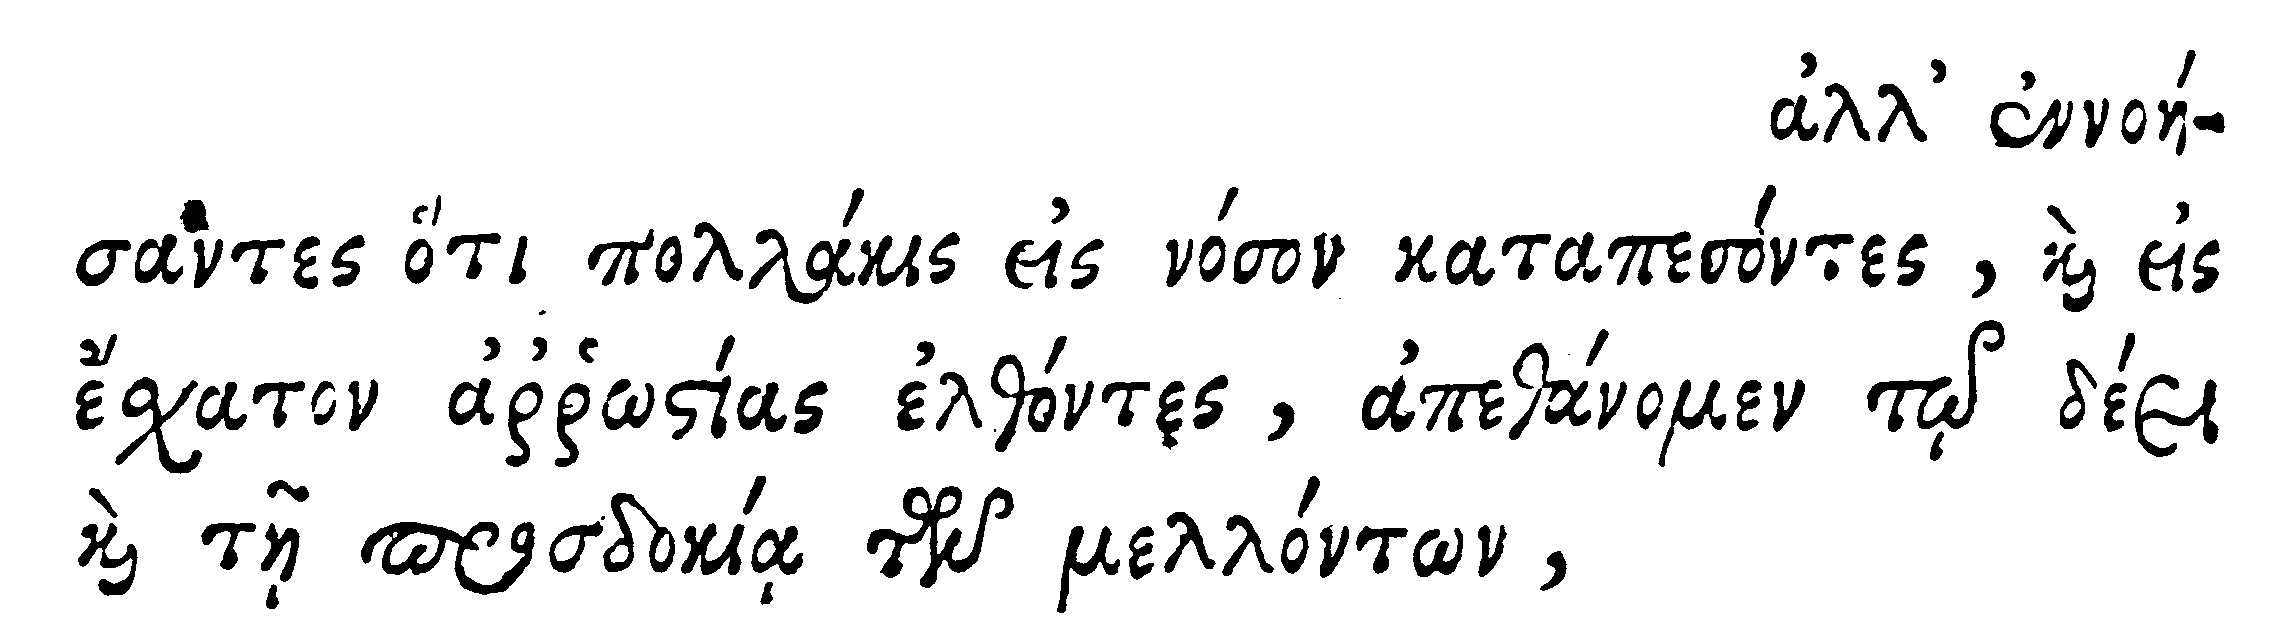 ἀλλ᾽ ἐννοή-
σαντες ὅτι πολλάκις εἰς νόσον καταπεσόντες, ϗ̀ εἰς
ἔσχατον ἀῤῥωστίας ἐλθόντες, ἀπεθάνομεν τῷ δέει
ϗ̀ τῇ προσδοκίᾳ τῶν μελλόντων,